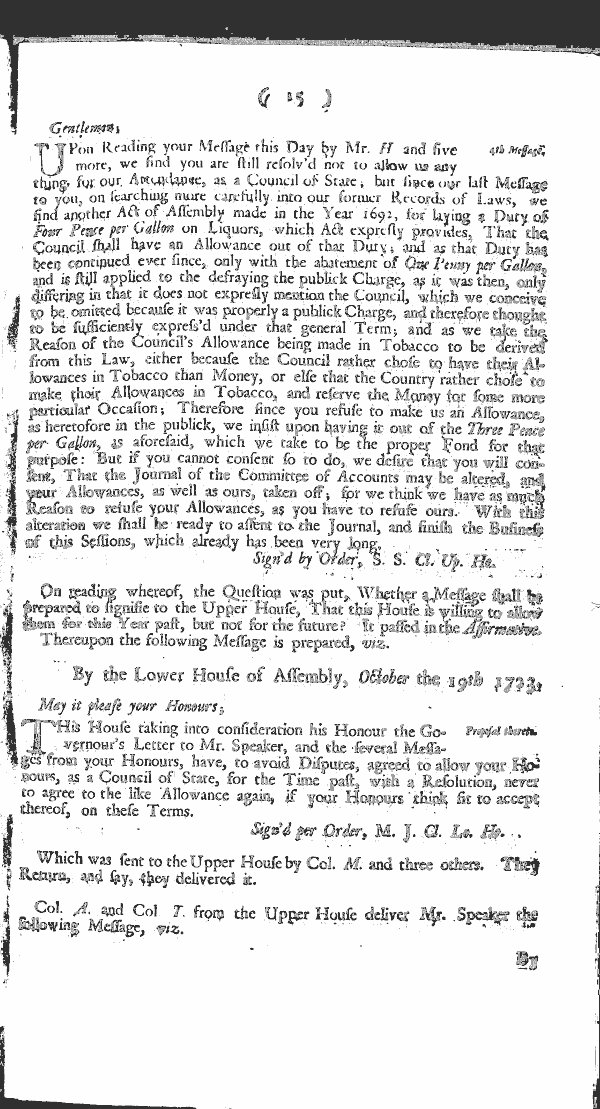 ( 15 )
Gentlemen,
UPon Reading your Meſſage this Day by Mr. H and five 4th Meſſage.
more, we find you are ſtill reſolv'd not to allow us any
thing for our Attendance, as a Council of State; but ſince our laſt Meſſage
to you, on ſearching more carefully into our former Records of Laws, we
find another Act of Aſſembly made in the Year 1692, for laying a Duty of
Four Pence per Gallon on Liquors, which Act expreſly provides, That the
Council ſhall have an Allowance out of that Duty; and as that Duty has
been continued ever ſince, only with the abatement of One Penny per Gallon,
and is ſtill applied to the defraying the publick Charge, as it was then, only
differing in that it does not expreſly mention the Council, which we conceive
to be omitted becauſe it was properly a publick Charge, and therefore thought
to be ſufficiently expreſs'd under that general Term; and as we take the
Reaſon of the Council's Allowance being made in Tobacco to be derived
from this Law, either becauſe the Council rather choſe to have their Al-
lowances in Tobacco than Money, or elſe that the Country rather choſe to
make their Allowances in Tobacco, and reſerve the Money for ſome more
particular Occaſion; Therefore ſince you refuſe to make us an Allowance,
as heretofore in the publick, we inſiſt upon having it out of the Three Pence
per Gallon, as aforeſaid, which we take to be the proper Fond for that
purpoſe: But if you cannot conſent ſo to do, we deſire that you will con-
ſent, That the Journal of the Committee of Accounts may be altered, and
your Allowances, as well as ours, taken off; for we think we have as much
Reaſon to refuſe your Allowances, as you have to refuſe ours. With this
alteration we ſhall be ready to aſſent to the Journal, and finiſh the Buſineſs
of this Seſſions, which already has been very long.
Sign'd by Order, S. S. Cl. Up. Ho.
On reading whereof, the Queſtion was put, Whether a Meſſage ſhall be
prepared to ſignifie to the Upper Houſe, That this Houſe is willing to allow
them for this Year paſt, but not for the future? It paſſed in the Affirmative.
Thereupon the following Meſſage is prepared, viz.
By the Lower Houſe of Aſſembly, October the 19th 1723.
May it pleaſe your Honours,
THis Houſe taking into conſideration his Honour the Go- Propoſal thereto.
vernour's Letter to Mr. Speaker, and the ſeveral Meſſa-
ges from your Honours, have, to avoid Diſputes, agreed to allow your Ho-
nours, as a Council of State, for the Time paſt, with a Reſolution, never
to agree to the like Allowance again, if your Honours think fit to accept
thereof, on theſe Terms.
Sign'd per Order, M. J. Cl. Lo. Ho.
Which was ſent to the Upper Houſe by Col. M. and three others. They
Return, and ſay, they delivered it.
Col. A. and Col T. from the Upper Houſe deliver Mr. Speaker the
following Meſſage, viz.
By